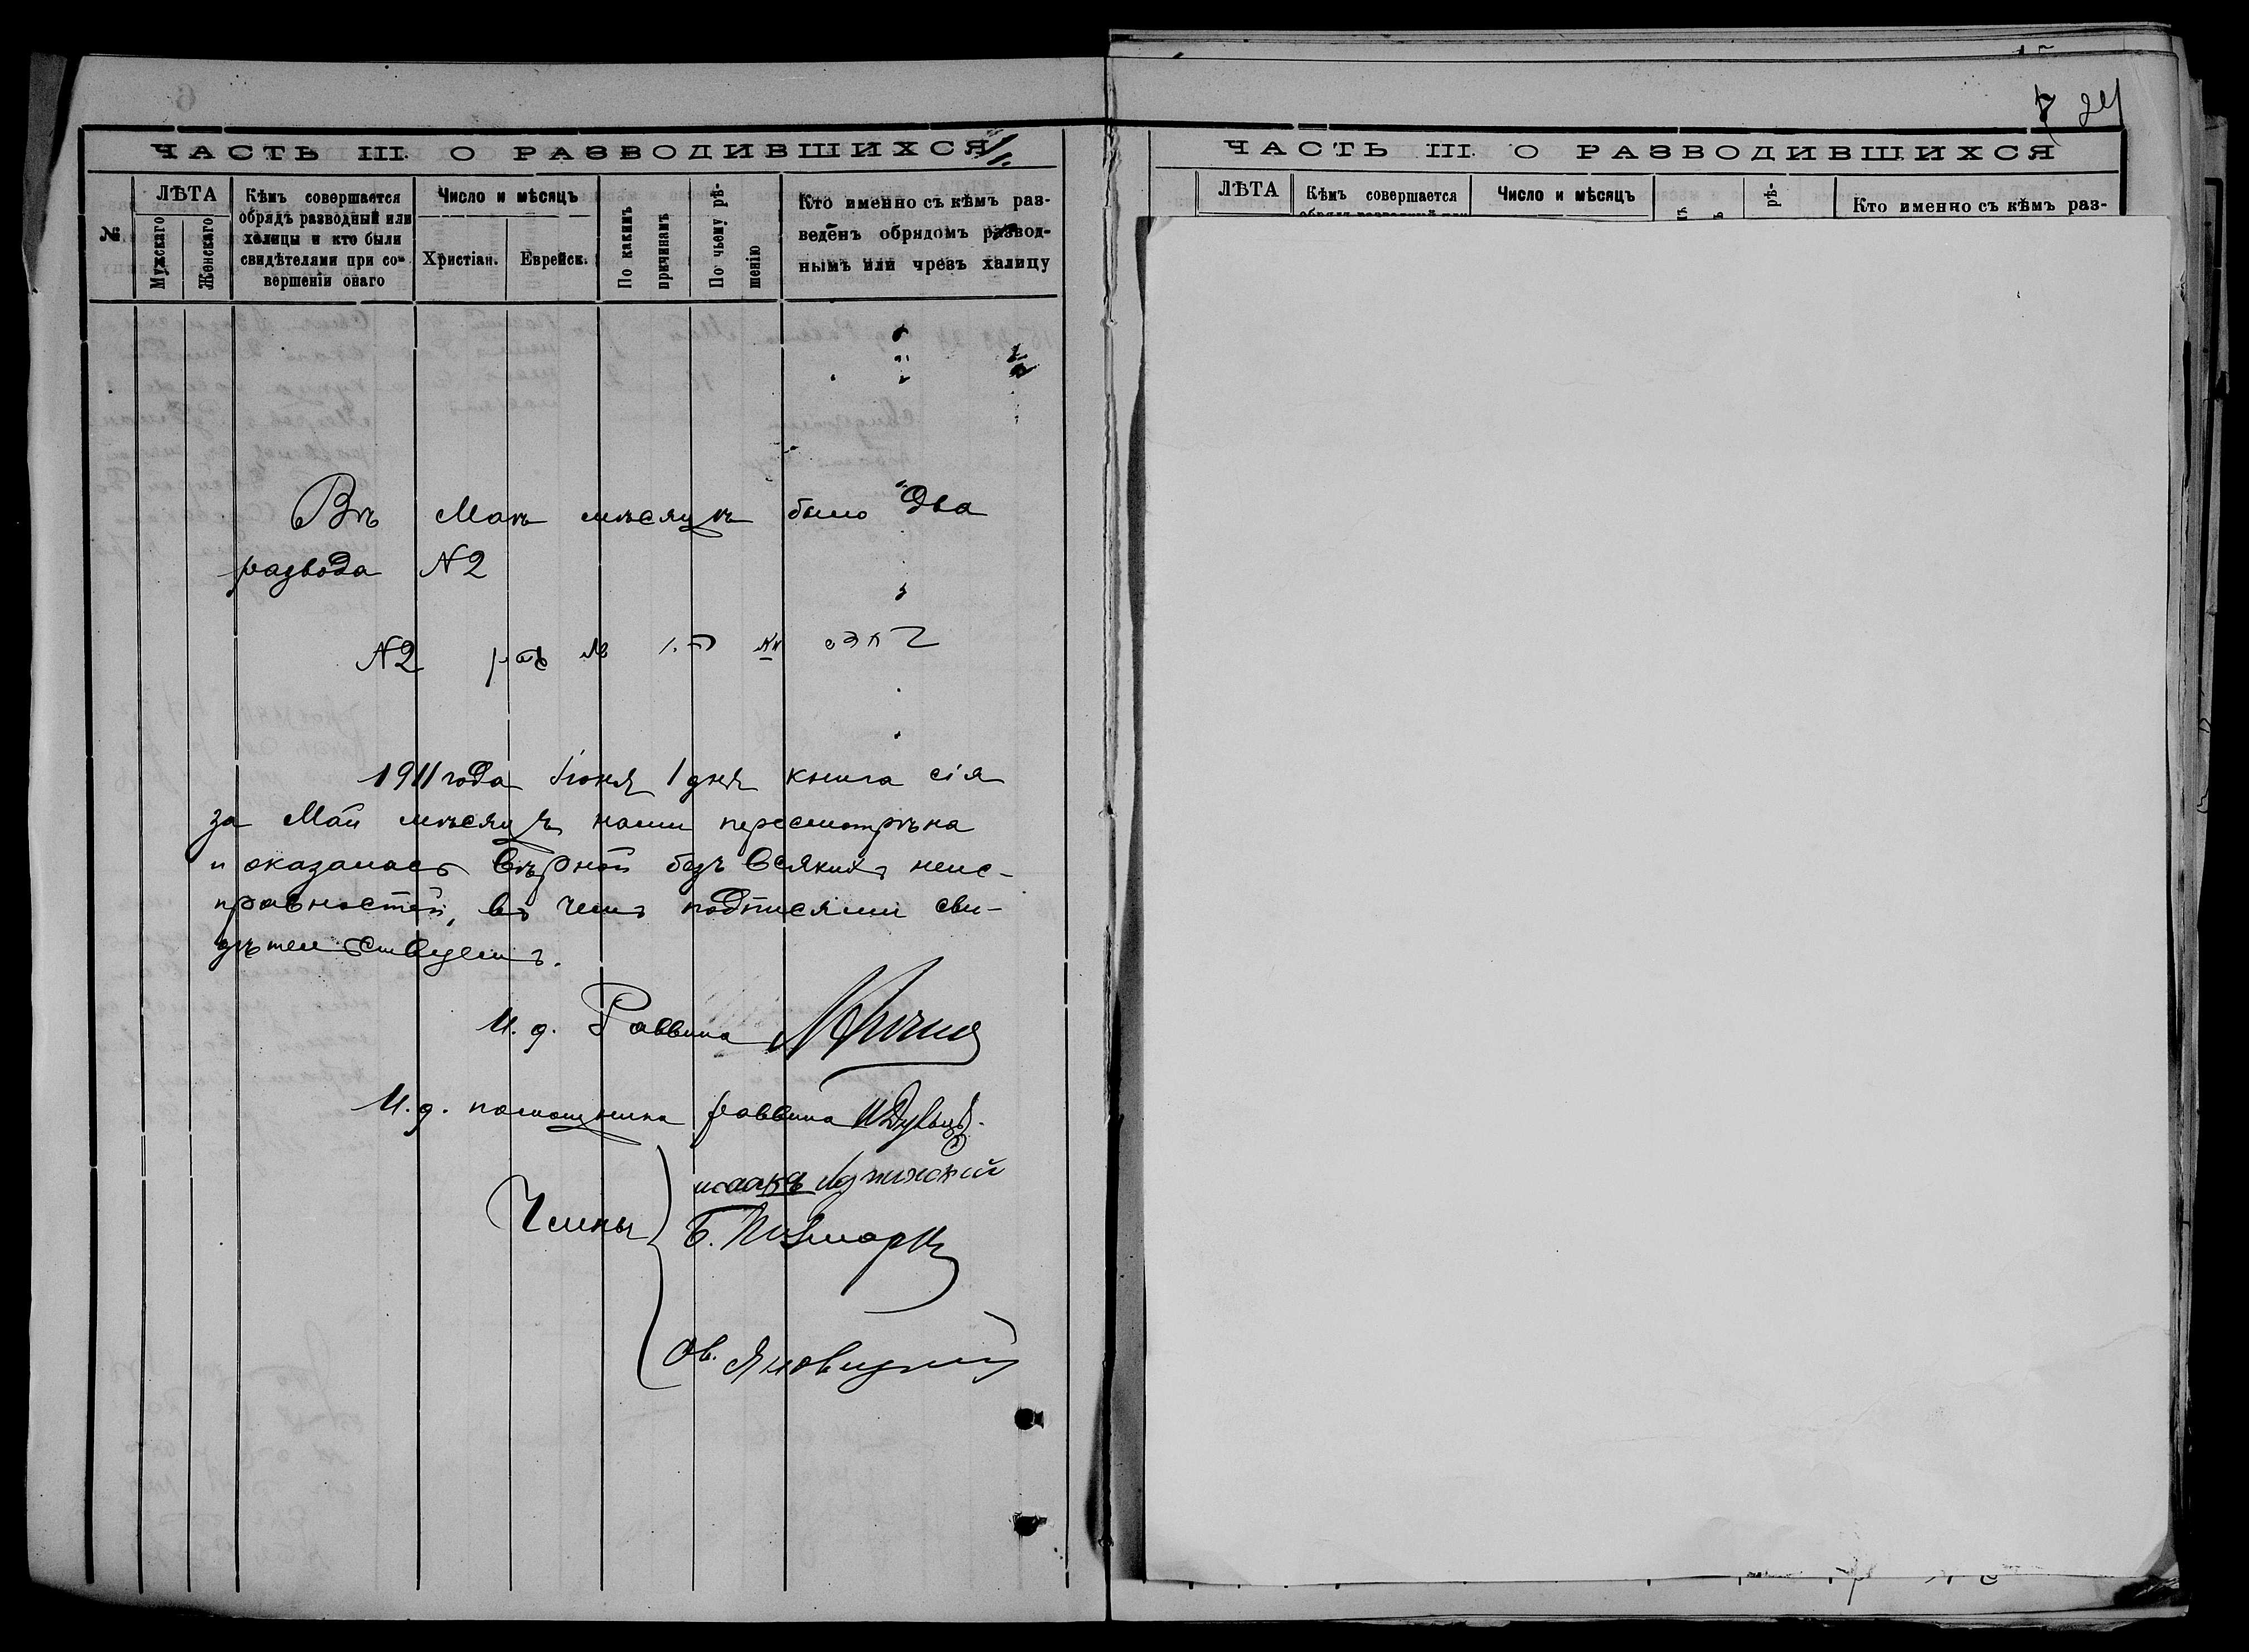 ЧАСТЬ III. О РАЗВОДИВШИХСЯ
№
ЛѢТА
Мужскаго
Женскаго
Кѣмъ совершается
обрядъ разводный или
халицы и кто были
свидѣтелями при со-
вершеніи онаго
Число и мѣсяцъ
Христіан.
Еврейск.
По какимъ
причинамъ
По чьему рѣ-
шенію
Кто именно съ кѣмъ раз-
веденъ обрядомъ развод-
нымъ или чрезъ халицу
Въ Маѣ мѣсяцѣ было два
развода N2
N2
1911 года Іюня 1 дня книга сія
за Май мѣсяцъ нами пересмотрѣна
и оказалась вѣрной безъ всякихъ неис-
правностей, въ чемъ подписями сви-
дѣтельствуемъ.
И. д. Раввина
И. д. помощника раввина
Члены
исаакъ
Б.
Ов. Яновицкий
7 24
ЧАСТЬ III. О РАЗВОДИВШИХСЯ
ЛѢТА
Кѣмъ совершается
Число и мѣсяцъ
рѣ-
Кто именно съ кѣмъ раз-